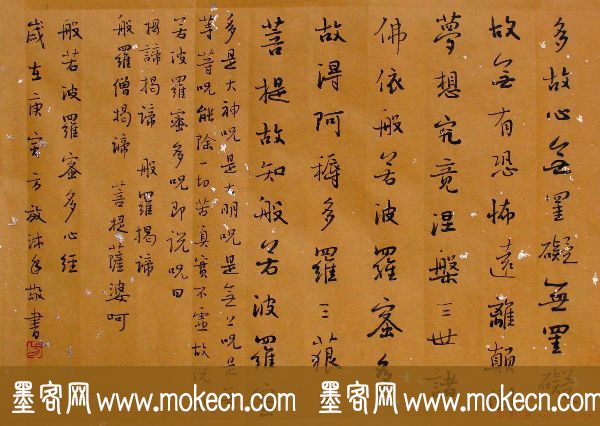 多故心無罣礙無罣礙
故無有恐怖遠離顛
夢想究竟涅槃三世諸
佛依般若波羅蜜多
故得阿耨多羅三藐
菩提故知般若波羅蜜
多是大神呪是大明呪是無上呪是無
等等呪能除一切苦真實不虛故說
若波羅蜜多呪即說呪曰
揭諦揭諦 般羅揭諦
般羅僧揭諦 菩提薩婆呵
般若波羅蜜多心經
歲在庚寅方放沐手敬書
墨客网 www.mokecn.com 墨客网 www.mokecn.com